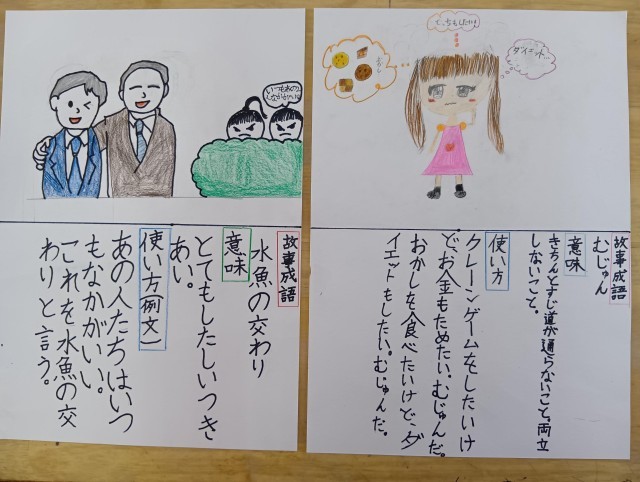 いつも水の
しながらいね
故事成語
水魚の交わり
意味
とてもしたしいつき
あい。
使い方例文一
あの人たちはいつ
もなかがいい。
これを水魚の交
わりと言う。
どっちもしたい!!
ダイエット…
故事成語
むじゅん
意味
きちんとすじ道が通らないこと。両立
しないこと。
使い方
クレーンゲームをしたいけ
ど、お金もためたい、むじゅんだ。
おかしを食べたいけど、ダ
イエットもしたい。むじゅんだ。